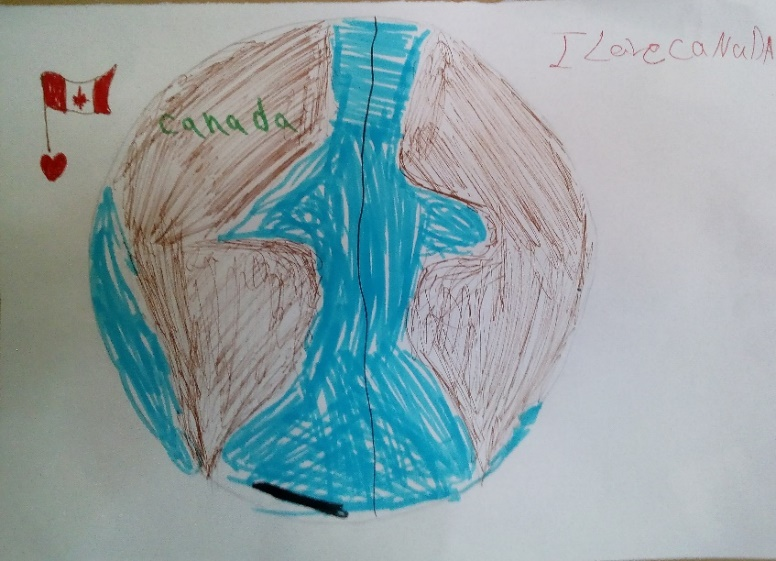 I LovecaNaDA
canada